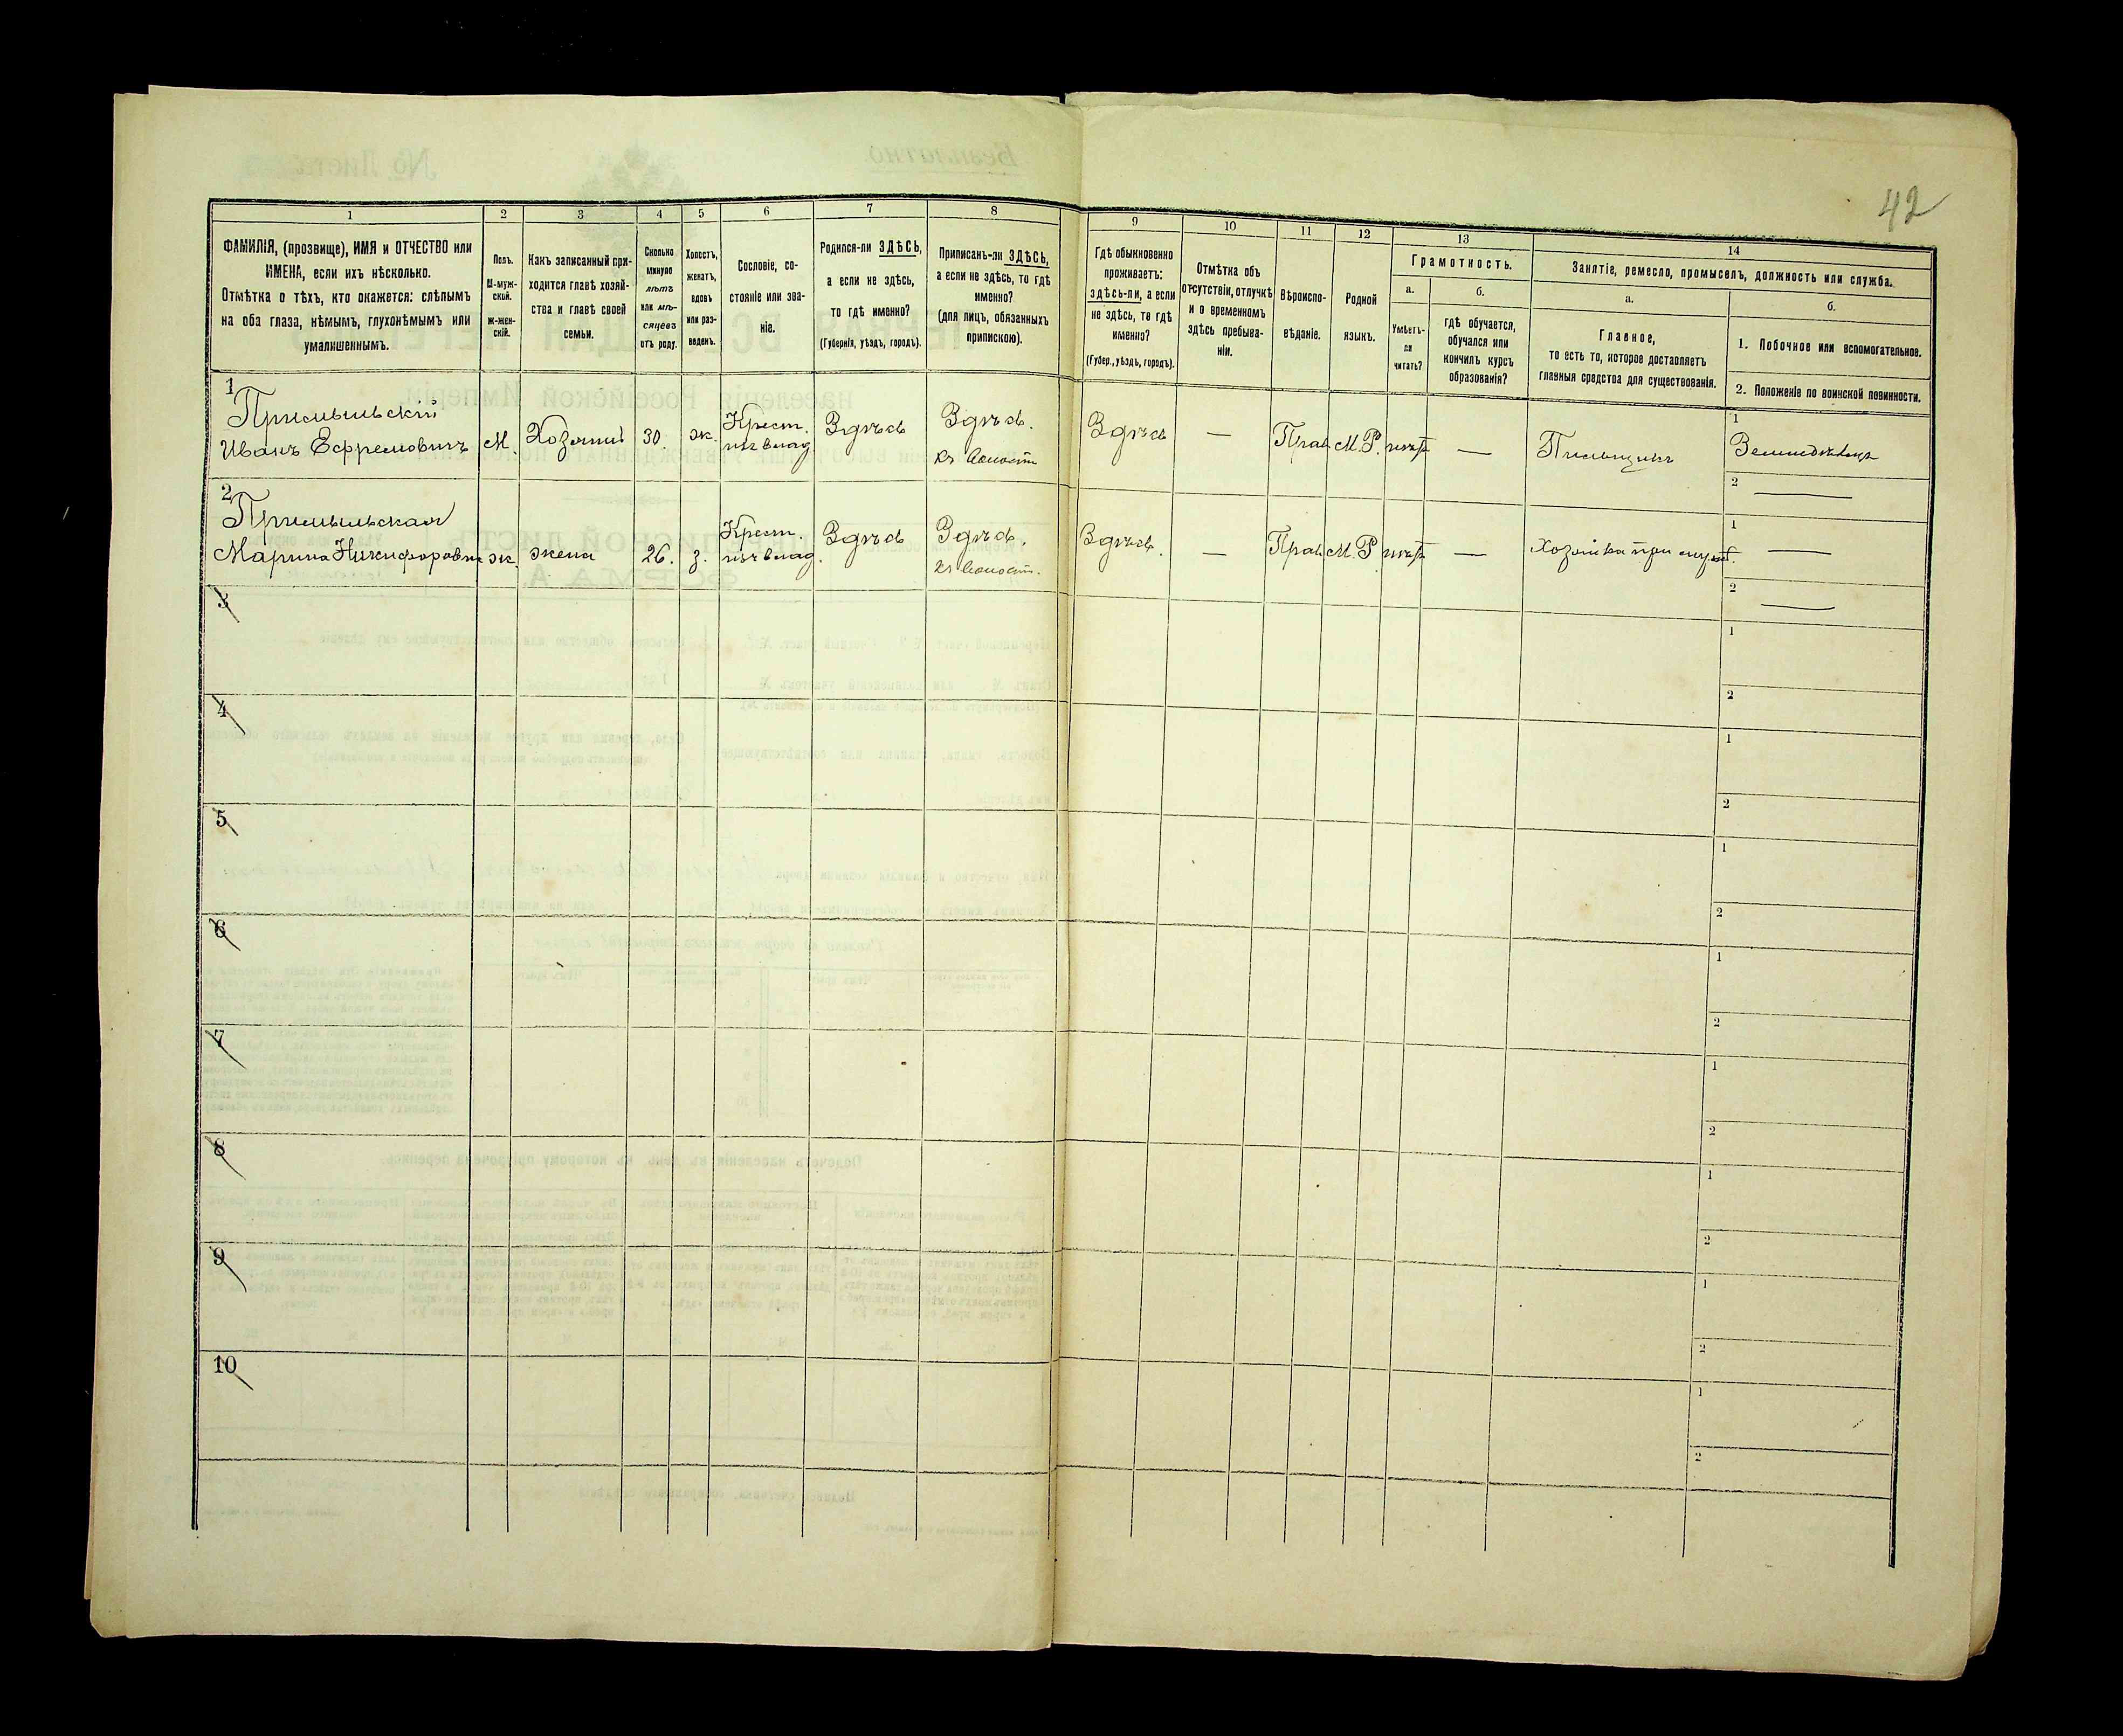 42
1 2 3 4 5 6 7 8 9 10 11 12 13 14
ФАМИЛІЯ, (прозвище), ИМЯ и ОТЧЕСТВО или
ИМЕНА, если ихъ нѣсколько.
Отмѣтка о тѣхъ, кто окажется: слѣпымъ
на оба глаза, нѣмымъ, глухонѣмымъ или
умалишеннымъ.
Полъ.
М-муж-
ской.
Ж-жен-
скій.
Какъ записанный при-
ходится главѣ хозяй-
ства и главѣ своей
семьи.
Сколько
минуло
лѣтъ
или мѣ-
сяцевъ
отъ роду.
Холостъ,
женатъ,
вдовъ
или раз-
веденъ.
Сословіе, со-
стояніе или зва-
ніе.
Родился-ли ЗДѢСЬ,
а если не здѣсь,
то гдѣ именно?
(Губернія, уѣздъ, городъ).
Приписанъ-ли ЗДѢСЬ,
а если не здѣсь, то гдѣ
именно?
(для лицъ, обязанныхъ
припискою).
Гдѣ обыкновенно
проживаетъ:
здѣсь-ли, а если
не здѣсь, то гдѣ
именно?
(Губер., уѣздъ, городъ).
Отмѣтка объ
отсутствіи, отлучкѣ
и о временномъ
здѣсь пребыва-
ніи.
Вѣроиспо-
вѣданіе.
Родной
языкъ.
Грамотность.
а.
Умѣетъ-
ли
читать?
б.
гдѣ обучается,
обучался или
кончилъ курсъ
образованія?
Занятіе, ремесло, промыселъ, должность или служба.
а.
Главное,
то есть то, которое доставляетъ
главныя средства для существованія.
б.
1. Побочное или вспомогательное.
2. Положеніе по воинской повинности.
1
Иванъ Ефремовичъ М. Хозяинъ 30. ж. Крест. изъ влад. Здѣсь Здѣсь. Здѣсь — Прав М.Р. нѣтъ — Пильщикъ
1
2 —
2
Марина Никифоровна ж. жена 26. з. Крест. изъ влад. Здѣсь Здѣсь. Здѣсь. — Прав М.Р. нѣтъ — Хозяйка при
1 —
2 —
3
1
2
4
1
2
5
1
2
6
1
2
7
1
2
8
1
2
9
1
2
10
1
2